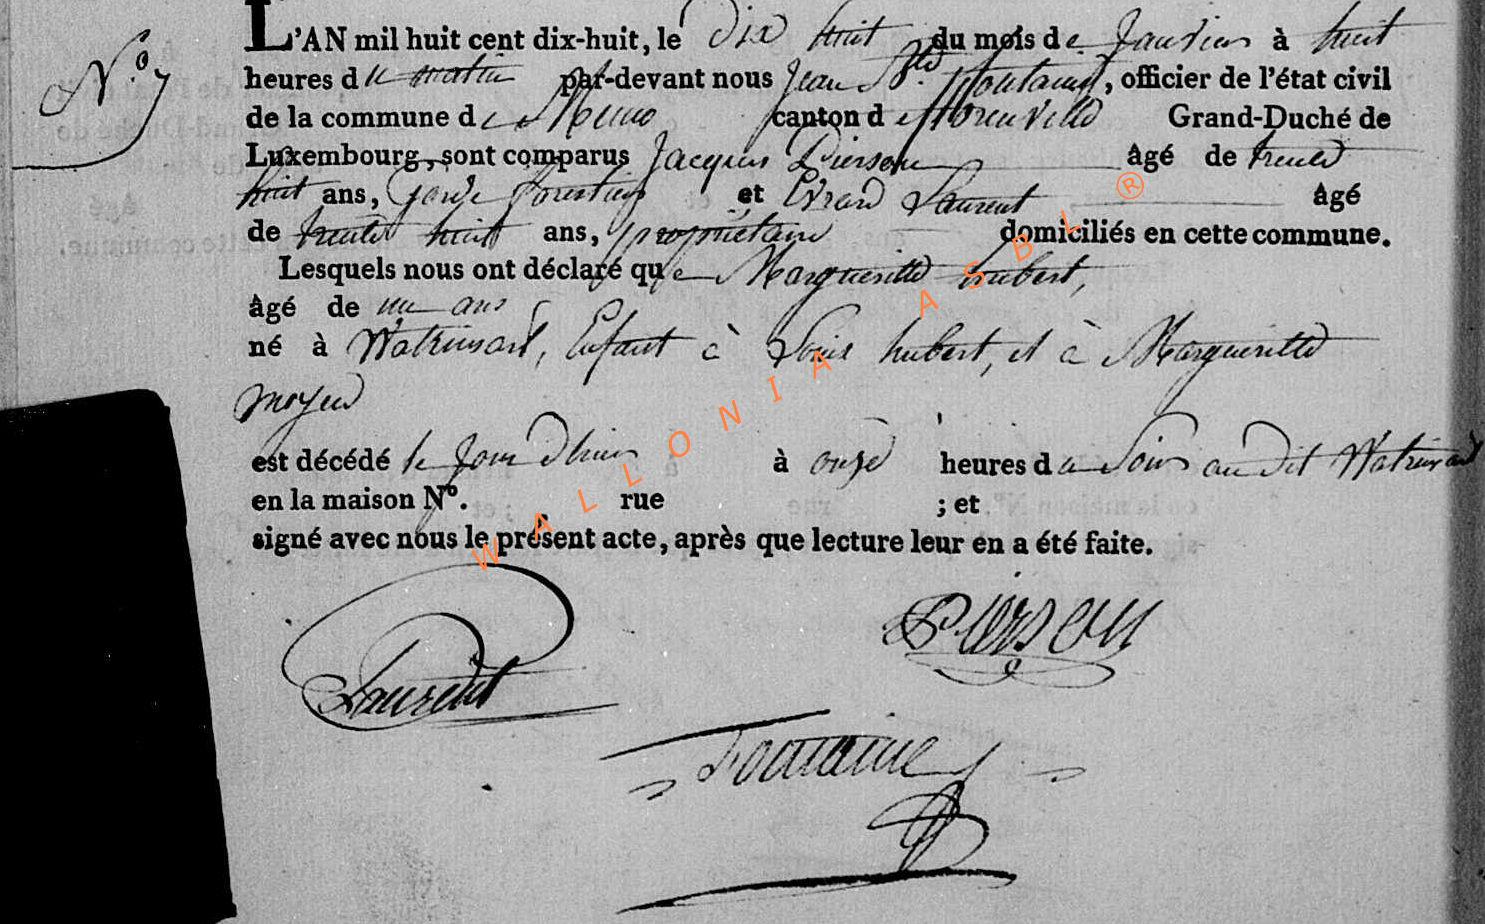 N.º 7
L'AN mil huit cent dix-huit, le Dix huit du mois de Janvier à huit
heures du matin par-devant nous Jean Bte. fontaine, officier de l'état civil
de la commune de Muno canton de florenville Grand-Duché de
Luxembourg, sont comparus Jacques Pierson âgé de trente
huit ans, Garde forestier et Evrard Laurent âgé
de trente huit ans, propriétaire domiciliés en cette commune.
Lesquels nous ont déclaré que Margueritte hubert,
âgé de un ans
né à Watrinsart, Enfant à Louis hubert, et à Margueritte
moyen
est décédé le jour d'hier à onze heures du soir au dit Watrinsart
en la maison Nº. rue ; et
signé avec nous le présent acte, après que lecture leur en a été faite.
Laurent
Pierson
Fontaine
WALLONIA ASBL ®